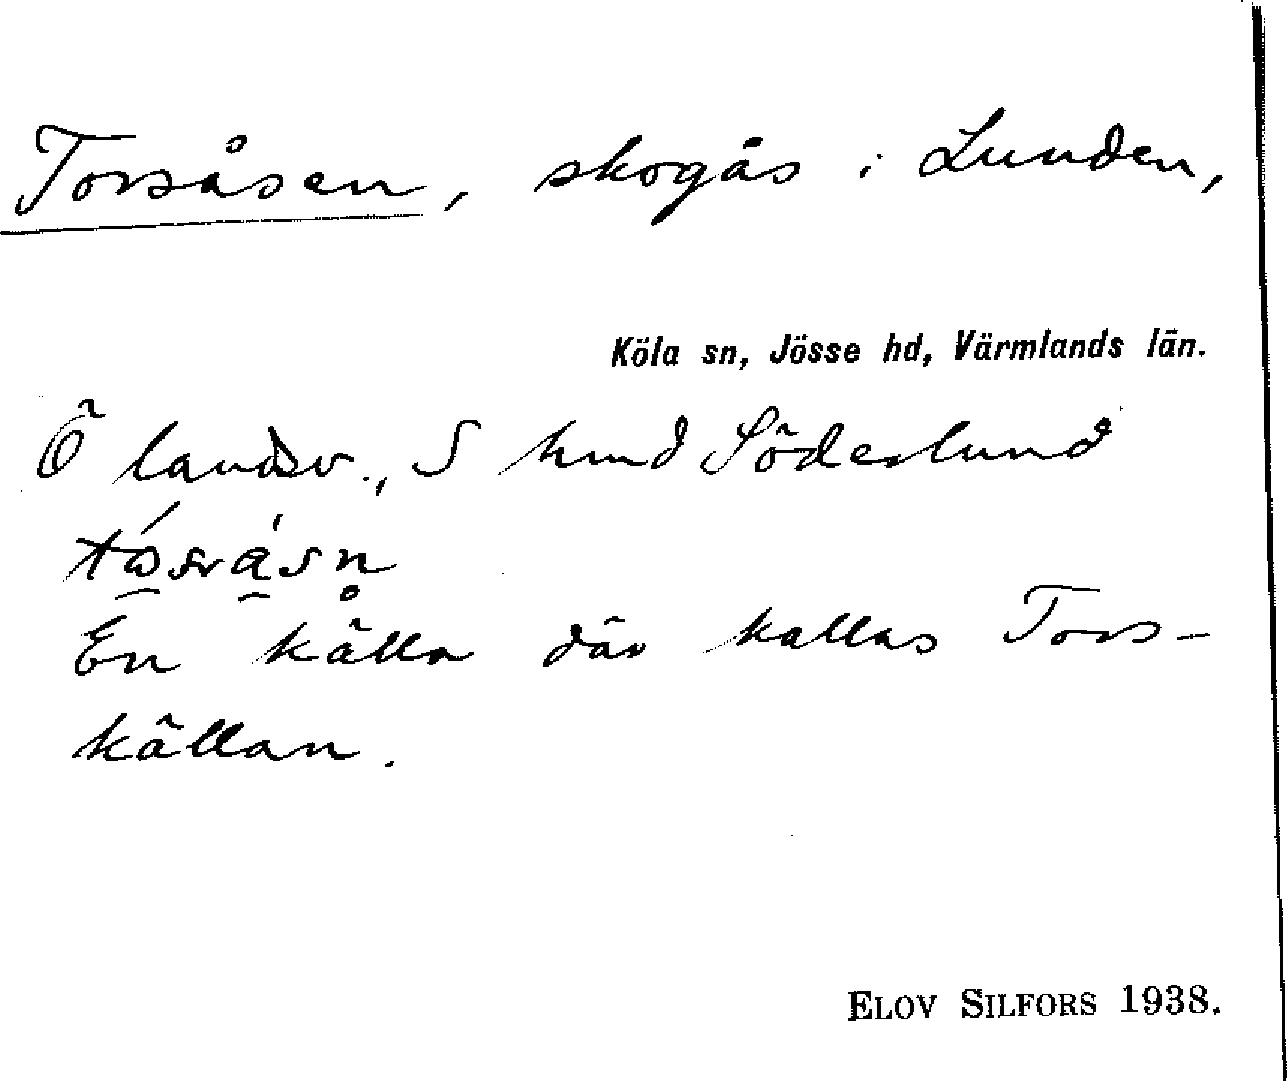 Torsåsen, skogås i Lunden,
Köla sn, Jösse hd, Värmlands län.
Ö landsv., S hmd Söderlund
En källa där kallas Tors-
källan.
ELOV SILFORS 1938.